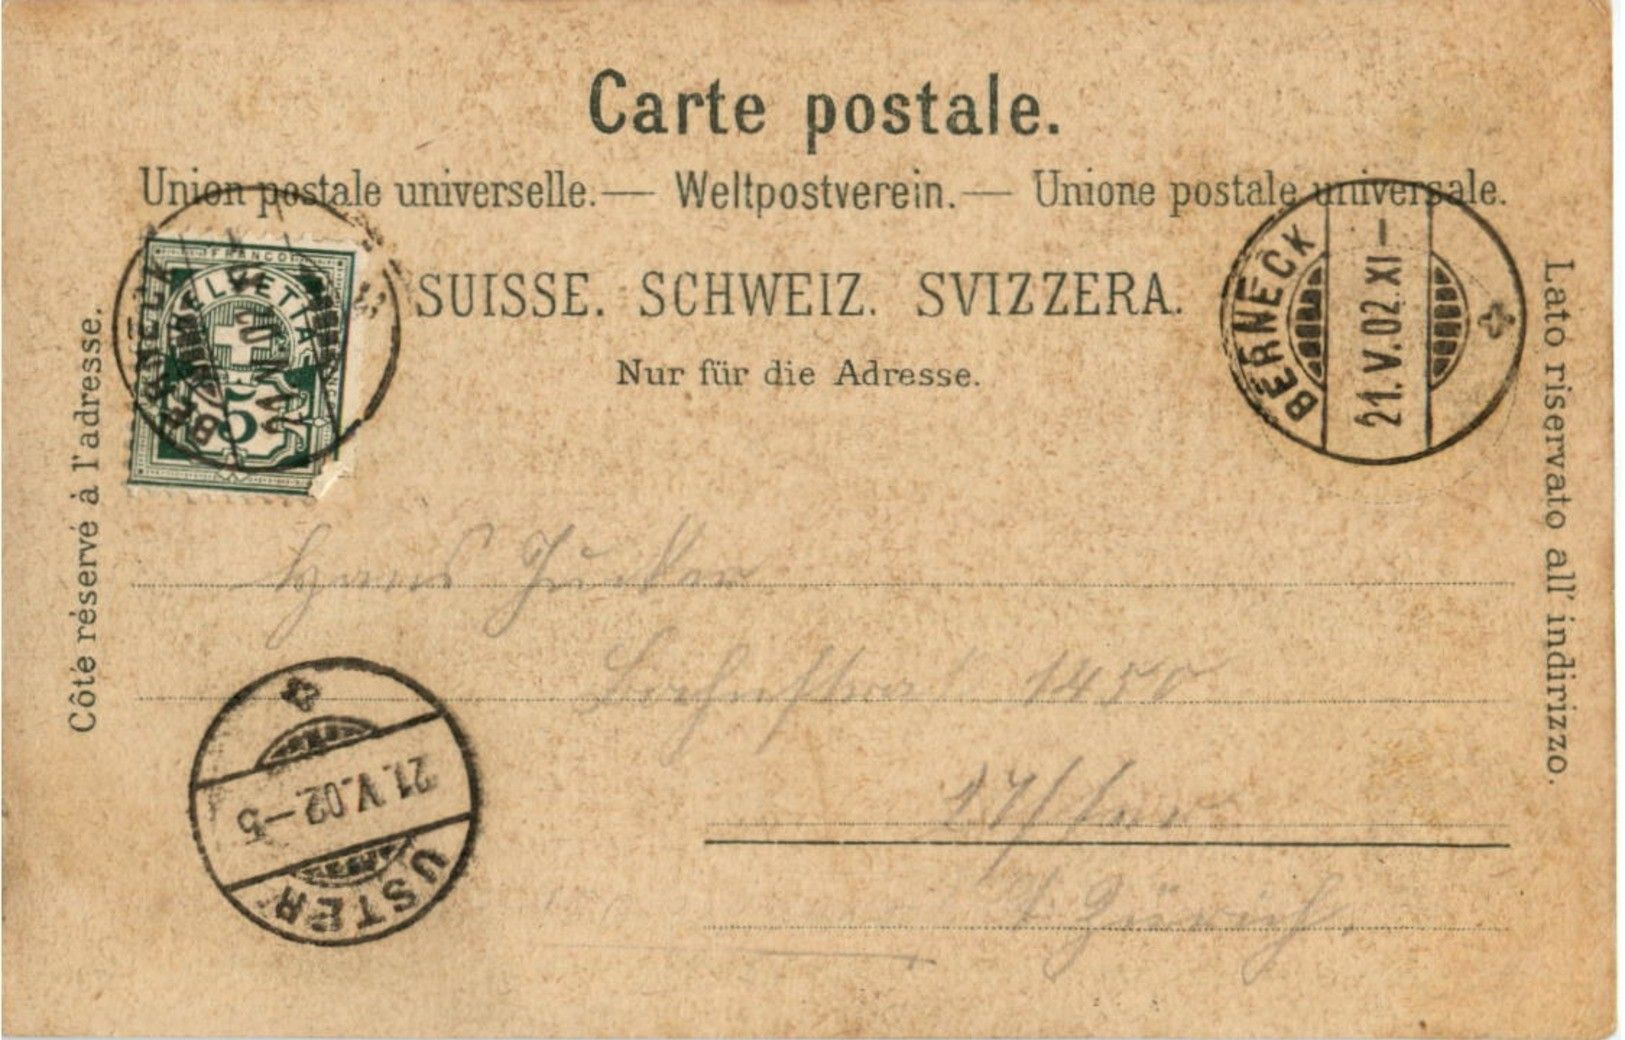 Carte postale.
Union postale universelle. — Weltpostverein. — Unione postale universale.
SUISSE. SCHWEIZ. SVIZZERA.
Nur für die Adresse.
Côté réservé à l'adresse.
Lato riservato all' indirizzo.
FRANCO
HELVETIA
5
BERNECK
BERNECK
21.V.02.XI–
Hans
1450
Uster
Zürich.
21.V.02–5
USTER